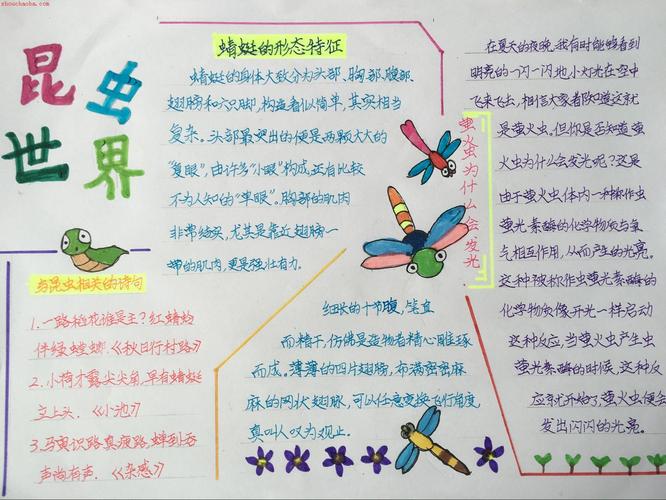 zhouchaoba.com
昆虫
世界
与昆虫相关的诗句
1.一路稻花谁是主?红蜻蛉
伴绿螳螂.《秋日行村路》
2.小荷才露尖尖角,早有蜻蜓
立上头.《小池》
3.马夷识路真疲路,蝉到吞
声尚有声.《杂感》
蜻蜓的形态特征
蜻蜓的身体大致分为头部、胸部、腹部、
翅膀和六只脚,构造看似简单,其实相当
复杂。头部最突出的便是两颗大大的
“复眼”,由许多“小眼”构成,还有比较
不为人知的“单眼”。胸部的肌肉
非常结实,尤其是靠近翅膀一
带的肌肉,更是强壮有力.
细长的十节腹,笔直
而精干,仿佛是造物者精心雕琢
而成。薄薄的四片翅膀,布满密密麻
麻的网状翅脉,可以任意变换飞行角度
真叫人叹为观止.
萤火虫为什么会发光
在夏天的夜晚,我有时能够看到
明亮的一闪一闪地小灯光在空中
飞来飞去,相信大家都知道这就
是萤火虫.但你是否知道萤
火虫为什么会发光呢?这是
由于萤火虫体内一种称作虫
萤光素酶的化学物质与氧
气相互作用,从而产生的光亮.
这种被称作虫萤光素酶的
化学物质像开光一样启动
这种反应,当萤火虫产生虫
萤光素酶的时候,这种反
应就开始了,萤火虫便会
发出闪闪的光亮.